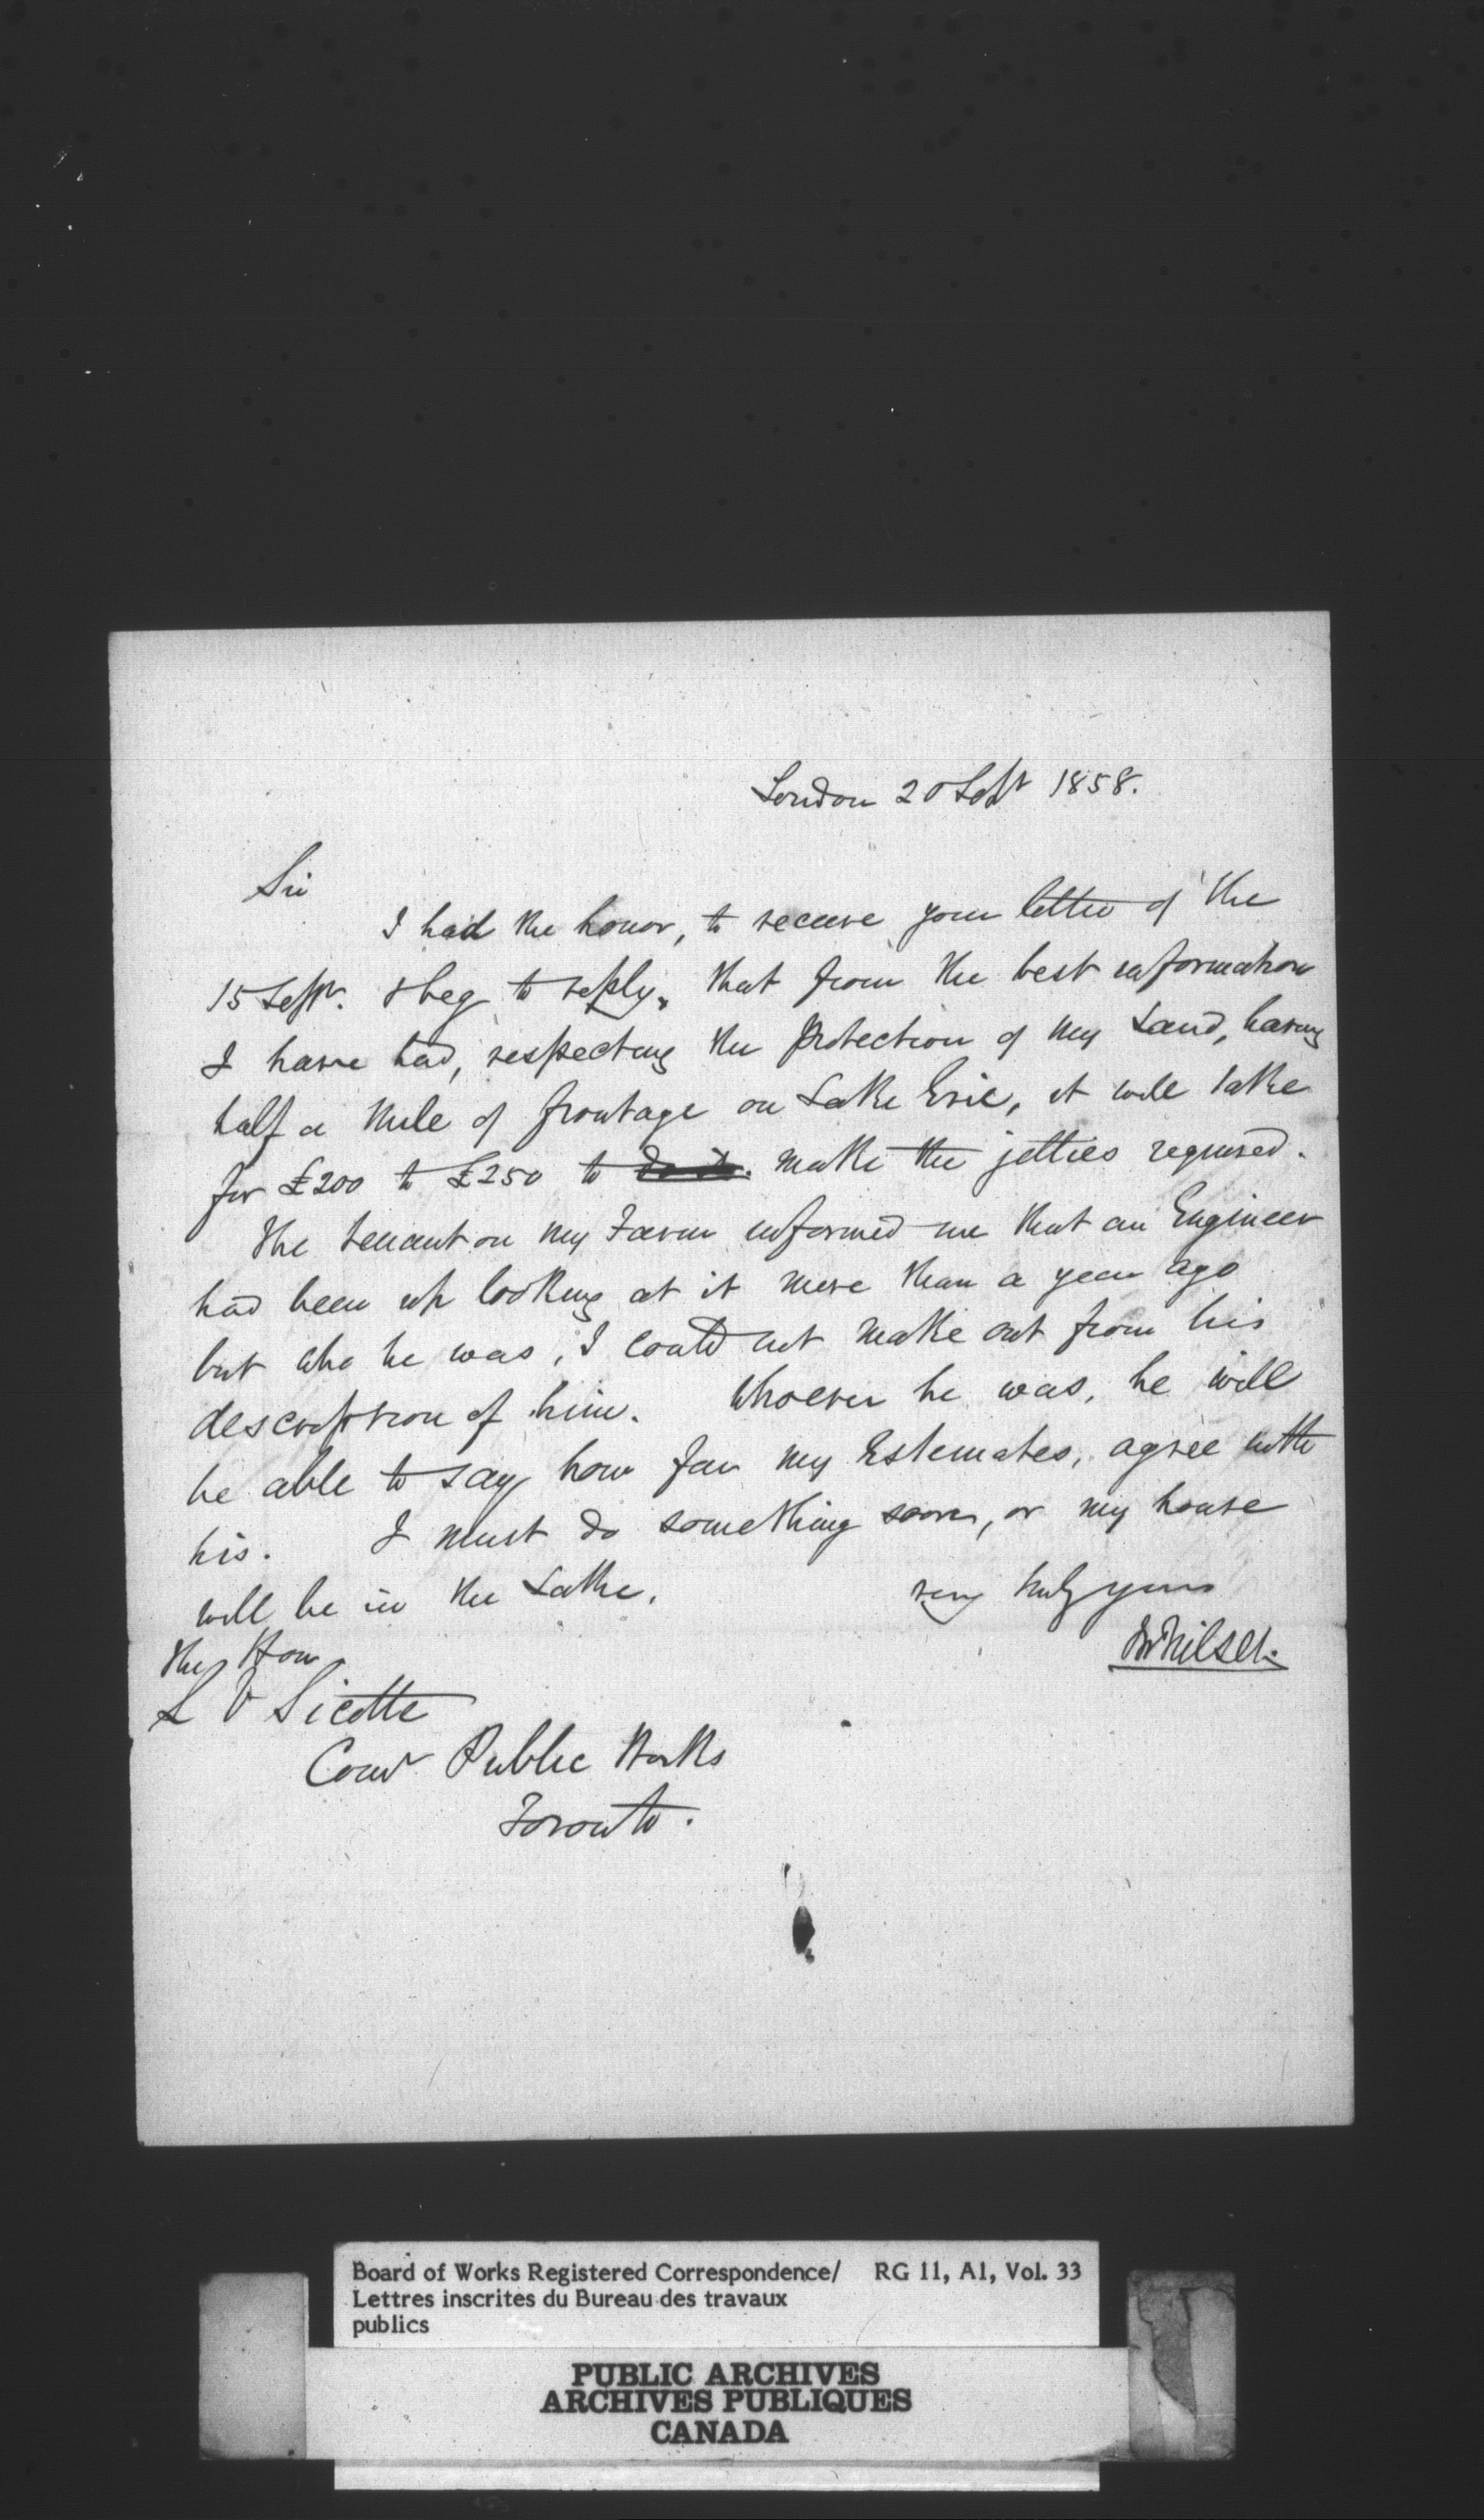 London 20 Sept 1858.
Sir
I had the honor, to receive your letter of the
15 Sept. & beg to reply, that from the best information
I have had, respecting the protection of my Land, having
half a mile of frontage on Lake Erie, it will take
for £200 to £250 to make the jetties required.
The tenant on my Farm informed me that an Engineer
had been up looking at it more than a year ago
but who he was, I could not make out from his
description of him. Whoever he was, he will
be able to say how far my Estemates, agree with
his. I must do something soon, or my house
will be in the Lake.
very truly yours
The Hon
L V Sicotte
Comr Public Works
Toronto.
Board of Works Registered Correspondence/ RG 11, A1, Vol. 33
Lettres inscrites du Bureau des travaux
publics
PUBLIC ARCHIVES
ARCHIVES PUBLIQUES
CANADA